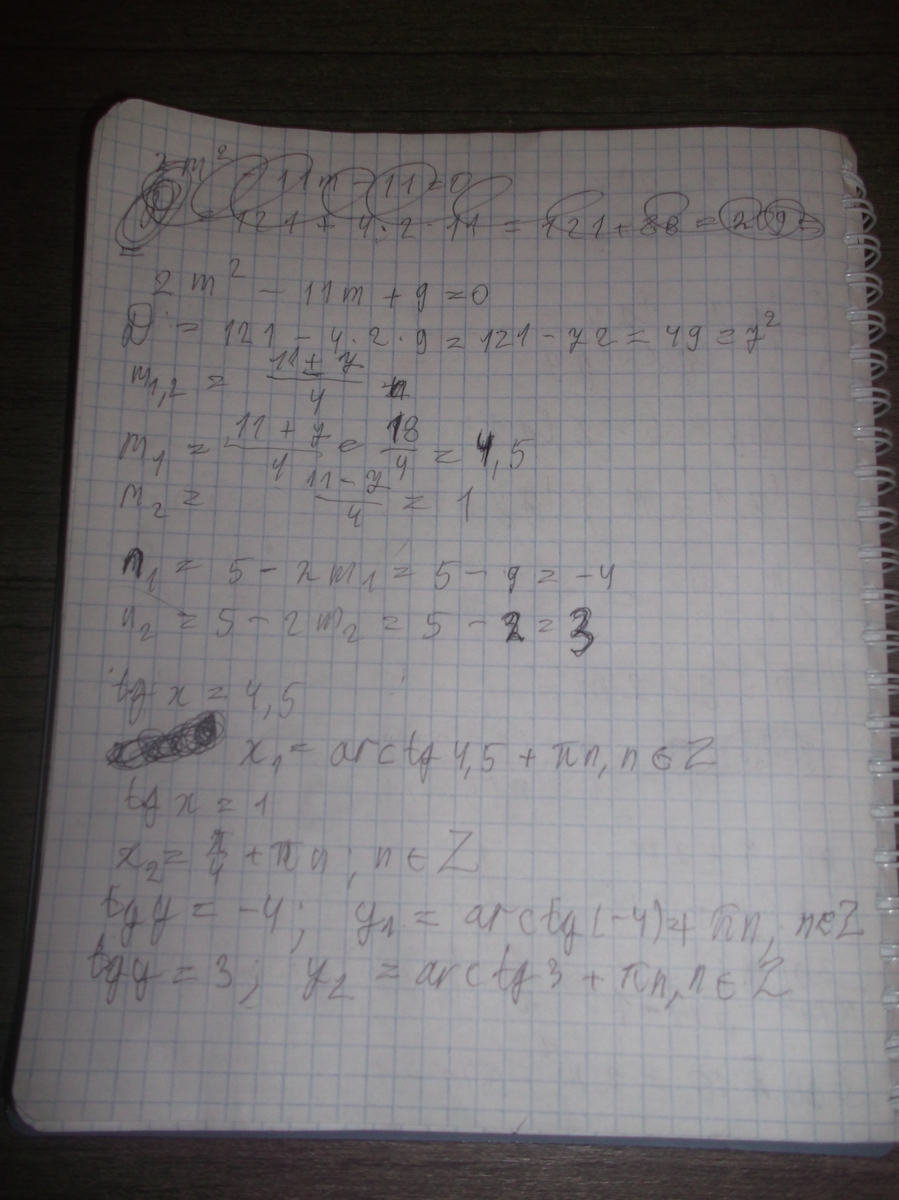 2m² - 11m - 11 = 0
= 121 + 4·2·11 = 121 + 88 = 209
2m² - 11m + 9 = 0
D = 121 - 4·2·9 = 121 - 72 = 49 = 7²
m₁,₂ = (11 ± 7)/4
m₁ = (11 + 7)/4 = 18/4 = 4,5
m₂ = (11 - 7)/4 = 1
n₁ = 5 - 2m₁ = 5 - 9 = -4
n₂ = 5 - 2m₂ = 5 - 2 = 3
tg x = 4,5
x₁ = arctg 4,5 + πn, n ∈ Z
tg x = 1
x₂ = π/4 + πn; n ∈ Z
tg y = -4; y₁ = arctg(-4) + πn, n ∈ Z
tg y = 3; y₂ = arctg 3 + πn, n ∈ Z